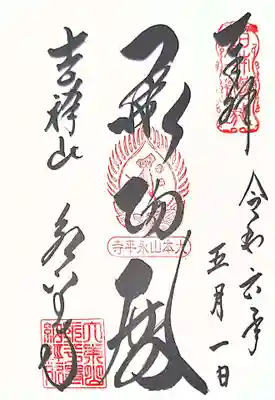 奉拝
令和六年
五月一日
承陽殿
大本山永平寺
吉祥山
永平寺